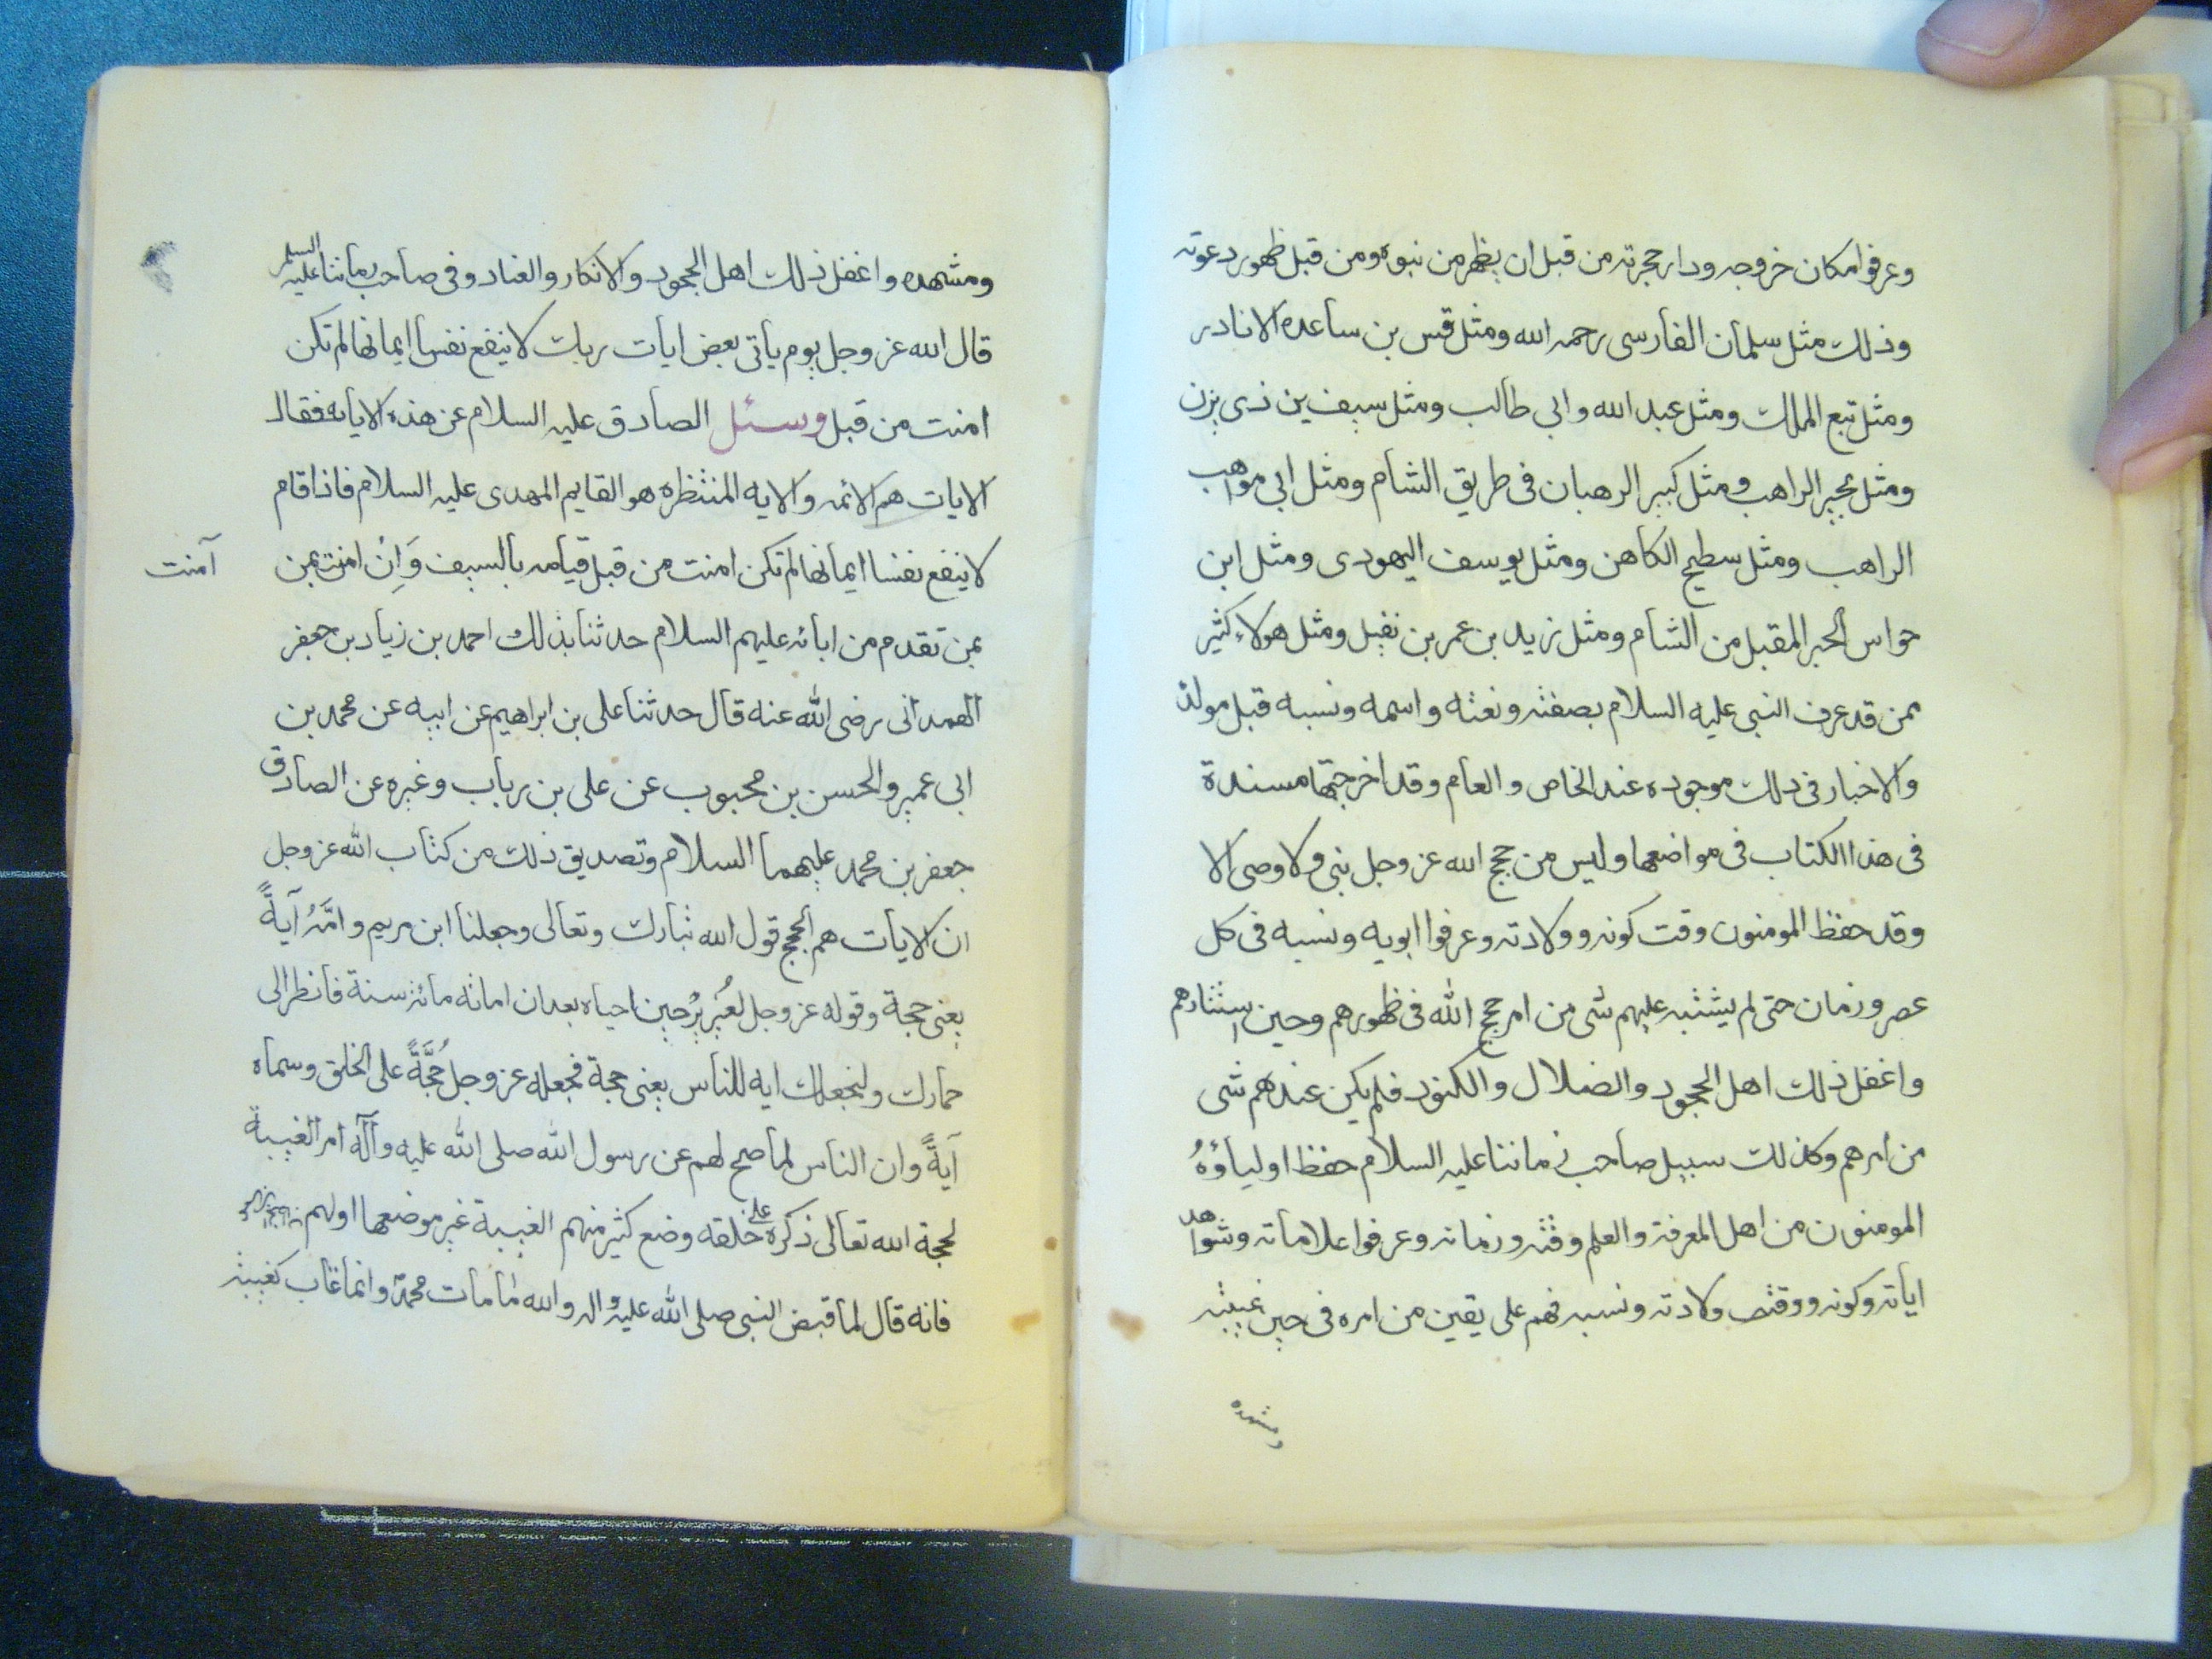 وعرفوا مكان خروجه ودار هجرته من قبل ان يظهر من نبوه ومن قبل ظهور دعوته
وذلك مثل سلمان الفارسى رحمه الله ومثل قس بن ساعده الا نادر
ومثل تبع الملك ومثل عبد الله وابى طالب ومثل سيف بن ذى يزن
ومثل بحير الراهب ومثل كبير الرهبان فى طريق الشام ومثل ابى مواهب
الراهب ومثل سطيح الكاهن ومثل يوسف اليهودى ومثل ابن
حواس الحبر المقبل من الشام ومثل زيد بن عمر بن نفيل ومثل هولاء كثير
ممن قد عرف النبى عليه السلام بصفته ونعته واسمه ونسبه قبل مولده
والاخبار فى ذلك موجوده عند الخاص والعام وقد اخرجتها مسندة
فى هذا الكتاب فى مواضعها وليس من حجج الله عز وجل نبى ولا وصى الا
وقد حفظ المومنون وقت كونه وولادته وعرفوا ابويه ونسبه فى كل
عصر وزمان حتى لم يشتبه عليهم شى من امر حجج الله فى ظهورهم وحين استتارهم
واغفل ذلك اهل الجحود والضلال والكنود فلم يكن عندهم شى
من امرهم وكذلك سبيل صاحب زماننا عليه السلام حفظ اولياؤهُ
المومنون من اهل المعرفة والعلم وقته وزمانه وعرفوا علاماته وشواهد
اياته وكونه ووقت ولادته ونسبه فهم على يقين من امره فى حين غيبته
ومشهده
ومشهده واغفل ذلك اهل الجحود والانكار والعناد وفى صاحب زماننا عليه السلم
قال الله عز وجل يوم يأتى بعض ايات ربك لا ينفع نفسا ايمانها لم تكن
امنت من قبل وسئل الصادق عليه السلام عن هذه الايايه فقال
الايات هم الائمه والايه المنتظره هو القايم المهدى عليه السلام فاذا قام
لا ينفع نفسا ايمانها لم تكن امنت من قبل قيامه بالسيف وَاِنْ امنت بمن
آمنت
بمن تقدم من ابائه عليهم السلام حدثنا بذلك احمد بن زياد بن جعفر
الهمدانى رضى الله عنه قال حدثنا على بن ابراهيم عن ابيه عن محمد بن
ابى عمير والحسن بن محبوب عن على بن رياب وغيره عن الصادق
جعفر بن محمد عليهما السلام وتصديق ذلك من كتاب الله عز وجل
ان الايات هم الحجج قول الله تبارك وتعالى وجعلنا ابن مريم وامَّهُ آيةً
يعنى حجة وقوله عز وجل لعُزيرُ حين احياه بعد ان اماته مائة سنة فانظر الى
حمارك ولنجعلك ايه للناس يعنى حجة فجعله عز وجل حُجَّةً على الخلق وسماه
آيةً وان الناس لما صح لهم عن رسول الله صلى الله عليه وآله امر الغيبة
لحجة الله تعالى ذكره على خلقه وضع كثير منهم الغيبة غير موضعها اولهم
فانه قال لما قبض النبى صلى الله عليه واله والله ما مات محمد وانما غاب كغيبة